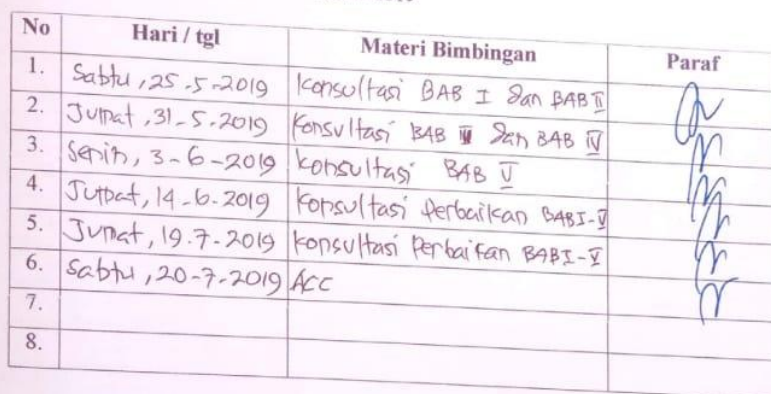 No Hari / tgl Materi Bimbingan Paraf
1. Sabtu, 25-5-2019 Konsultasi BAB I dan BAB II
2. Jumat, 31-5-2019 Konsultasi BAB III dan BAB IV
3. Senin, 3-6-2019 Konsultasi BAB V
4. Jumat, 14-6-2019 Konsultasi Perbaikan BAB I-V
5. Jumat, 19-7-2019 Konsultasi Perbaikan BAB I-V
6. Sabtu, 20-7-2019 ACC
7.
8.